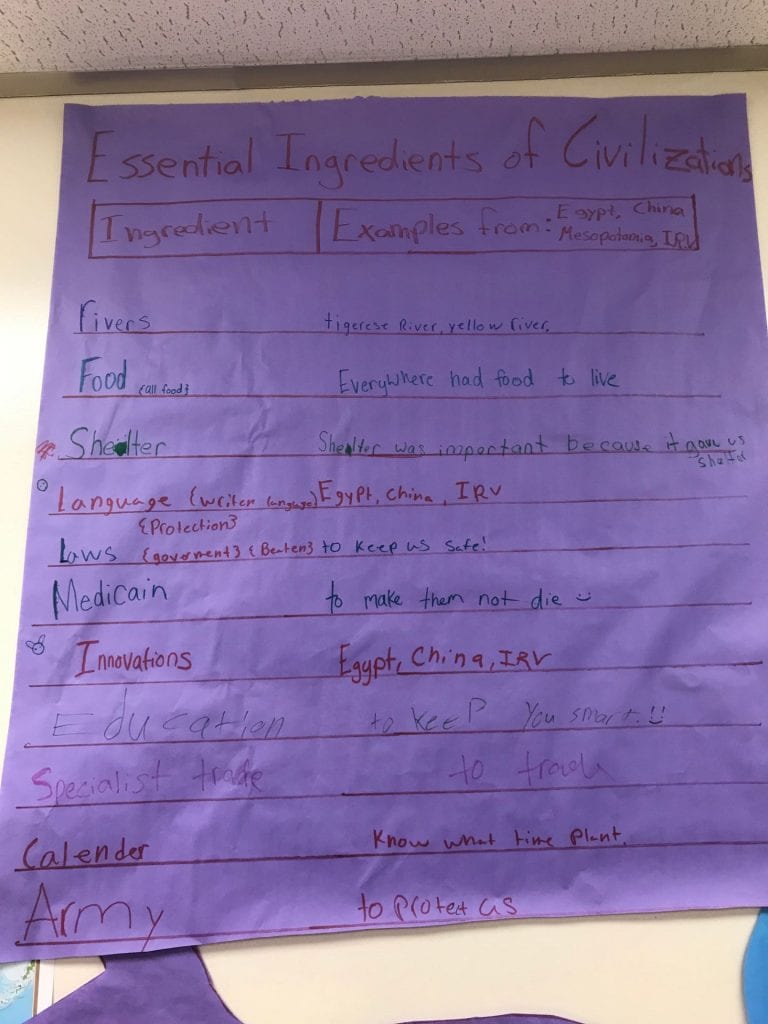 Essential Ingredients of Civilizations
Ingredient Examples from: Egypt, China
Mesopotamia, IRV
rivers tigerese River, yellow river,
Food {all food} Everywhere had food to live
Shealter Shealter was important because it gave us
shelter
Language {writen language} Egypt, China, IRV
{Protection}
Laws {goverment} {Beaten} to keep us safe!
Medicain to make them not die
Innovations Egypt, China, IRV
Education to keep you smart!!
Specialist trade to trade
Calender Know what time plant.
Army to protect us